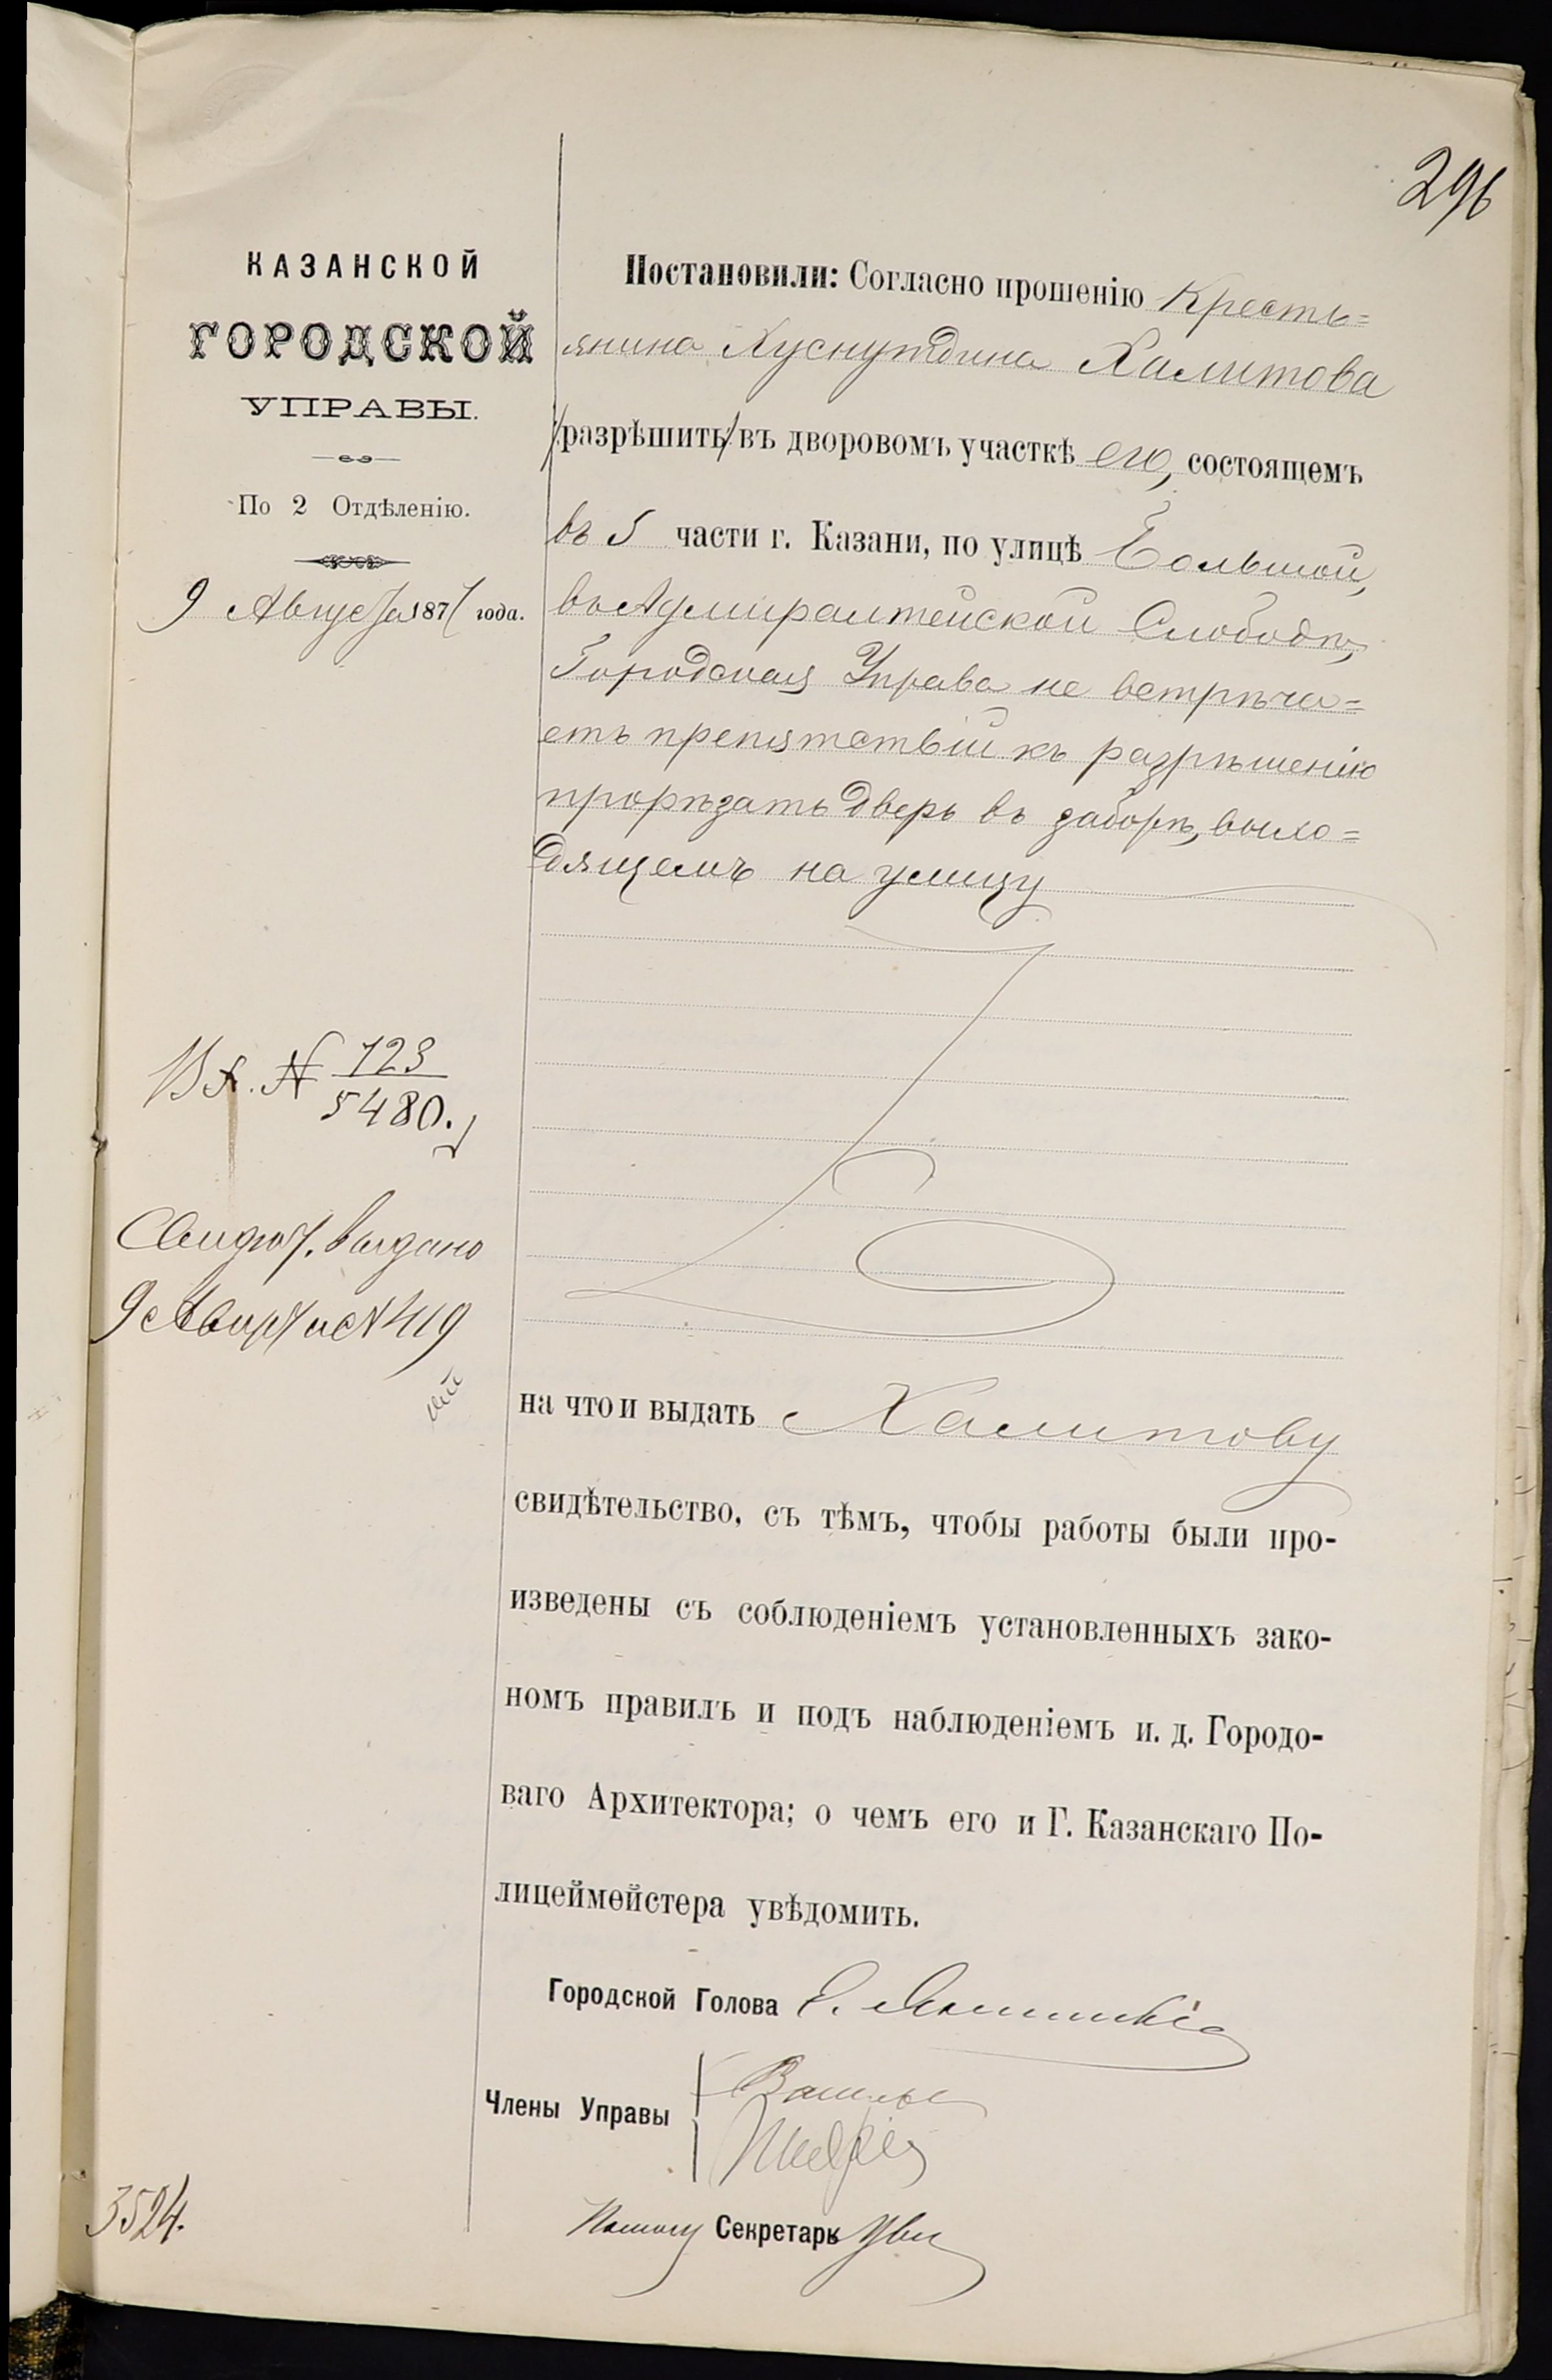 296
КАЗАНСКОЙ
ГОРОДСКОЙ
УПРАВЫ.
По 2 Отдѣленію.
9 Августа 187 года.
Вх. № 723
5480.
Свидѣт. выдано
9 Августа № 419
3524.
Постановили: Согласно прошенію Кресть=
янина Хуснутдина Халитова
/разрѣшить/ въ дворовомъ участкѣ его, состоящемъ
въ 5 части г. Казани, по улицѣ Большой,
въ Адмиралтейской Слободѣ,
Городская Управа не встрѣча=
етъ препятствій къ разрѣшенію
прорѣзать дверь въ заборѣ, выхо=
дящемъ на улицу
на что и выдать Халитову
свидѣтельство, съ тѣмъ, чтобы работы были про-
изведены съ соблюденіемъ установленныхъ зако-
номъ правилъ и подъ наблюденіемъ и. д. Городо-
ваго Архитектора; о чемъ его и Г. Казанскаго По-
лицеймейстера увѣдомить.
Городской Голова
Члены Управы
Секретарь